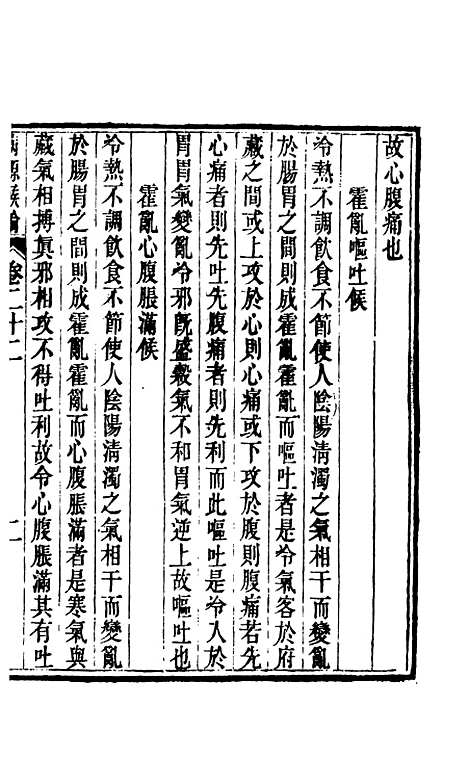 故心腹痛也
霍亂嘔吐候
冷熱不調飲食不節使人陰陽清濁之氣相干而變亂
於腸胃之間則成霍亂霍亂而嘔吐者是冷氣客於府
藏之間或上攻於心則心痛或下攻於腹則腹痛若先
心痛者則先吐先腹痛者則先利而此嘔吐是冷入於
胃胃氣變亂冷邪既盛穀氣不和胃氣逆上故嘔吐也
霍亂心腹脹滿候
冷熱不調飲食不節使人陰陽清濁之氣相干而變亂
於腸胃之間則成霍亂霍亂而心腹脹滿者是寒氣與
藏氣相搏真邪相攻不得吐利故令心腹脹滿其有吐
源候論 卷二十二 二